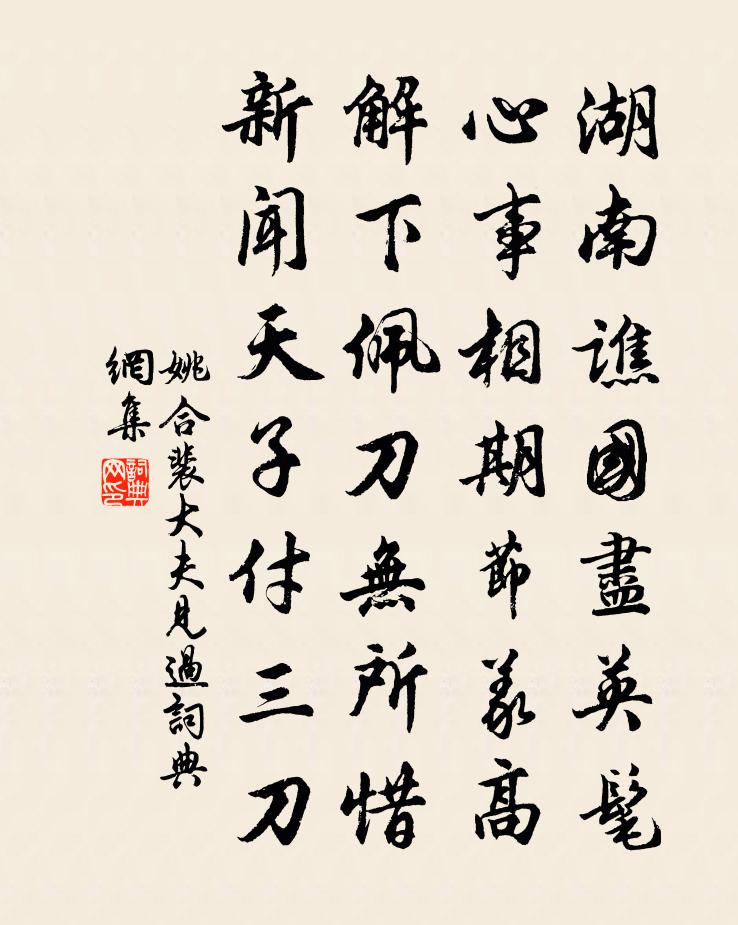 湖南譙國盡英髦
心事相期節義高
解下佩刀無所惜
新聞天子付三刀
姚合裴大夫見過詞典
網集
詞典
网印